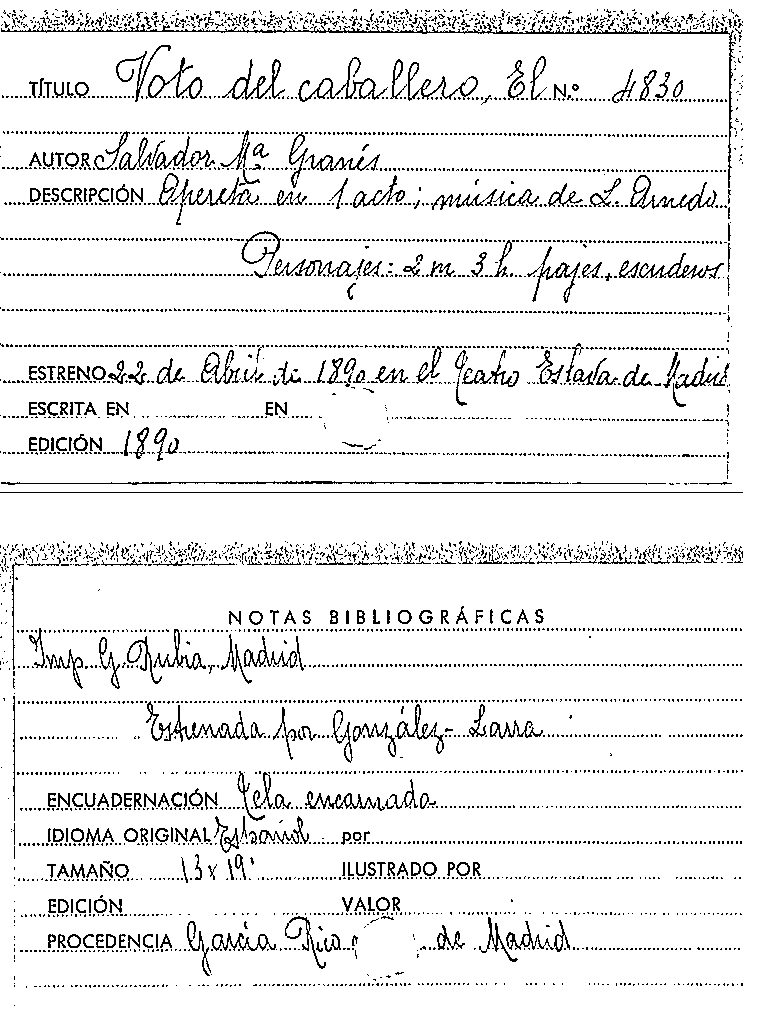 TÍTULO Voto del caballero, El N.º 4830
AUTOR Salvador Mª Granés
DESCRIPCIÓN Opereta en 1 acto; música de L. Arnedo
Personajes: 2 m 3 h. pajes, escuderos
ESTRENO 22 de Abril de 1890 en el Teatro Eslava de Madrid
ESCRITA EN EN
EDICIÓN 1890
NOTAS BIBLIOGRÁFICAS
Imp. G. Rubia, Madrid
Estrenada por González - Larra
ENCUADERNACIÓN Tela encarnada
IDIOMA ORIGINAL Español por
TAMAÑO 13 x 19 ILUSTRADO POR
EDICIÓN VALOR
PROCEDENCIA García Rico de Madrid